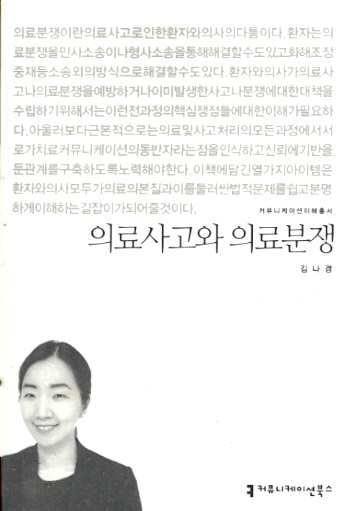 의료분쟁이란의료사고로인한환자와의사의다툼이다.환자는의
료분쟁을민사소송이나형사소송을통해해결할수도있고화해조정
중재등소송외의방식으로해결할수도있다.환자와의사가의료사
고나의료분쟁을예방하거나이미발생한사고나분쟁에대한대책을
수립하기위해서는이런전과정의핵심쟁점들에대한이해가필요하
다.아울러보다근본적으로는의료및사고처리의모든과정에서서
로가치료커뮤니케이션의동반자라는점을인식하고신뢰에기반을
둔관계를구축하도록노력해야한다.이책에담긴열가지아이템은
환자와의사모두가의료의본질과이를둘러싼법적문제를쉽고분명
하게이해하는길잡이가되어줄것이다.
커뮤니케이션이해총서
의료사고와 의료분쟁
김나경
커뮤니케이션북스